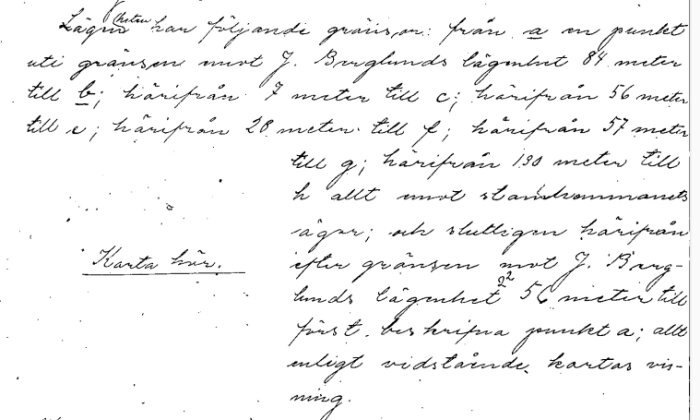 Lägenheten har följande gränsor: från a en punkt
uti gränsen emot J. Berglunds lägenhet 84 meter
till b; härifrån 7 meter till c; härifrån 56 meter
till e; härifrån 28 meter till f; härifrån 57 meter
till g; härifrån 130 meter till
h allt emot stamhemmanets
ägor; och slutligen härifrån
efter gränsen mot J. Berg-
lunds lägenhet 22 56 meter till
först beskrifna punkt a; allt
enligt vidstående kartas vis-
ning.
Karta här.